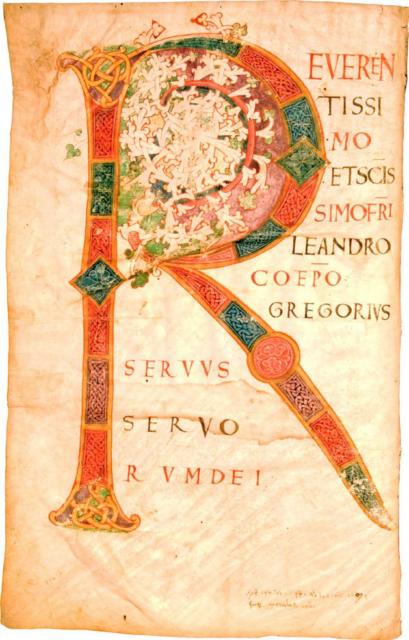 REVEREN
TISSI
MO
ETSCIS
SIMOFRI
LEANDRO
COEPO
GREGORIVS
SERVVS
SERVO
RVMDEI